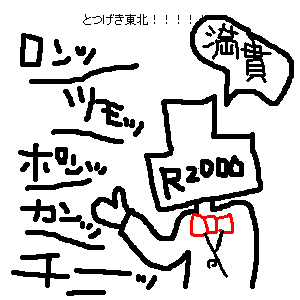 とつげき東北！！！！
満貫
ロンッ
ツモッ
ポンッ
カンッ
チーッ
R2000